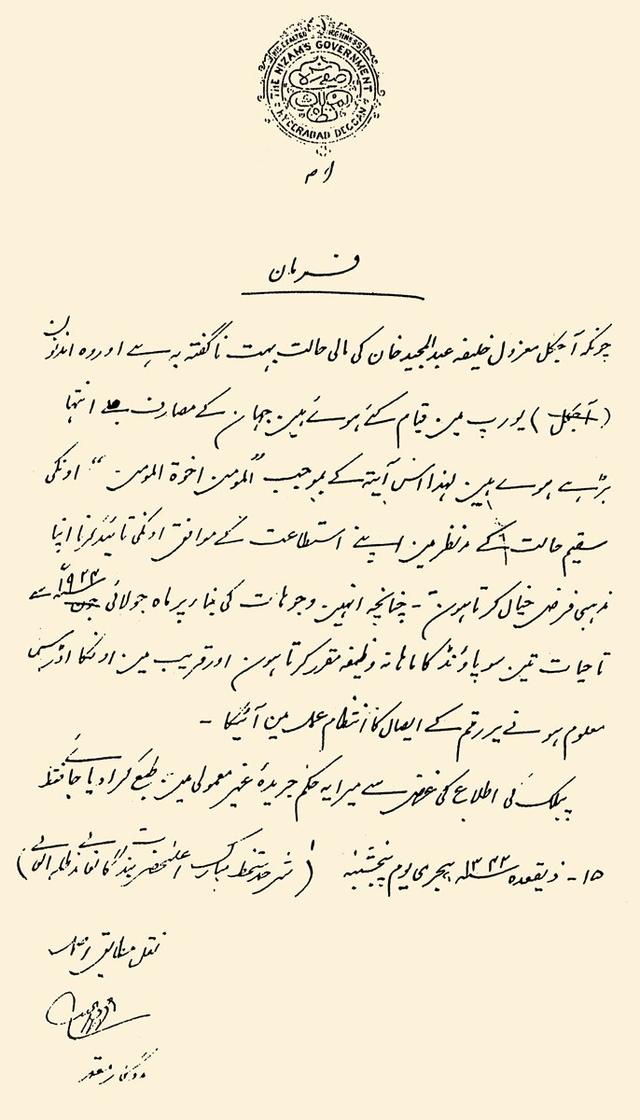 HIS EXALTED HIGHNESS
THE NIZAM'S GOVERNMENT
HYDERABAD DECCAN
فرمان
چونکہ آجکل معزول خلیفہ عبدالمجید خان کی مالی حالت بہت ناگفتہ بہ ہے اور وہ اندنوں
(آجکل) یورپ مین قیام کئے ہوئے ہین جہان کے مصارف بے انتہا
بڑہے ہوے ہین لہذا اس آیتہ کے بموجب "المومن اخوۃ المومن" اونکی
سقیم حالت کے مدنظر مین اپنے استطاعت کے موافق اونکی تائید کرنا اپنا
مذہبی فرض خیال کرتا ہون - چنانچہ انہین وجوہات کی بنا پر ماہ جولائی ۱۹۲۴ سے
تاحیات تین سو پاؤنڈ کا ماہانہ وظیفہ مقرر کرتا ہون اور قریب مین اونکا اڈرس
معلوم ہونے پر رقم کے ایصال کا انتظام عمل مین آئیگا -
پبلک کی اطلاع کی غرض سے میرا یہ حکم جریدۂ غیر معمولی مین طبع کرا دیا جائے فقط
۱۵ - ذیقعدہ ۱۳۴۲ ہجری یوم پنجشنبہ (شرحدستخط مبارک اعلیحضرت بندگانعالی مدظلہ العالی)
نقل مطابق اصل